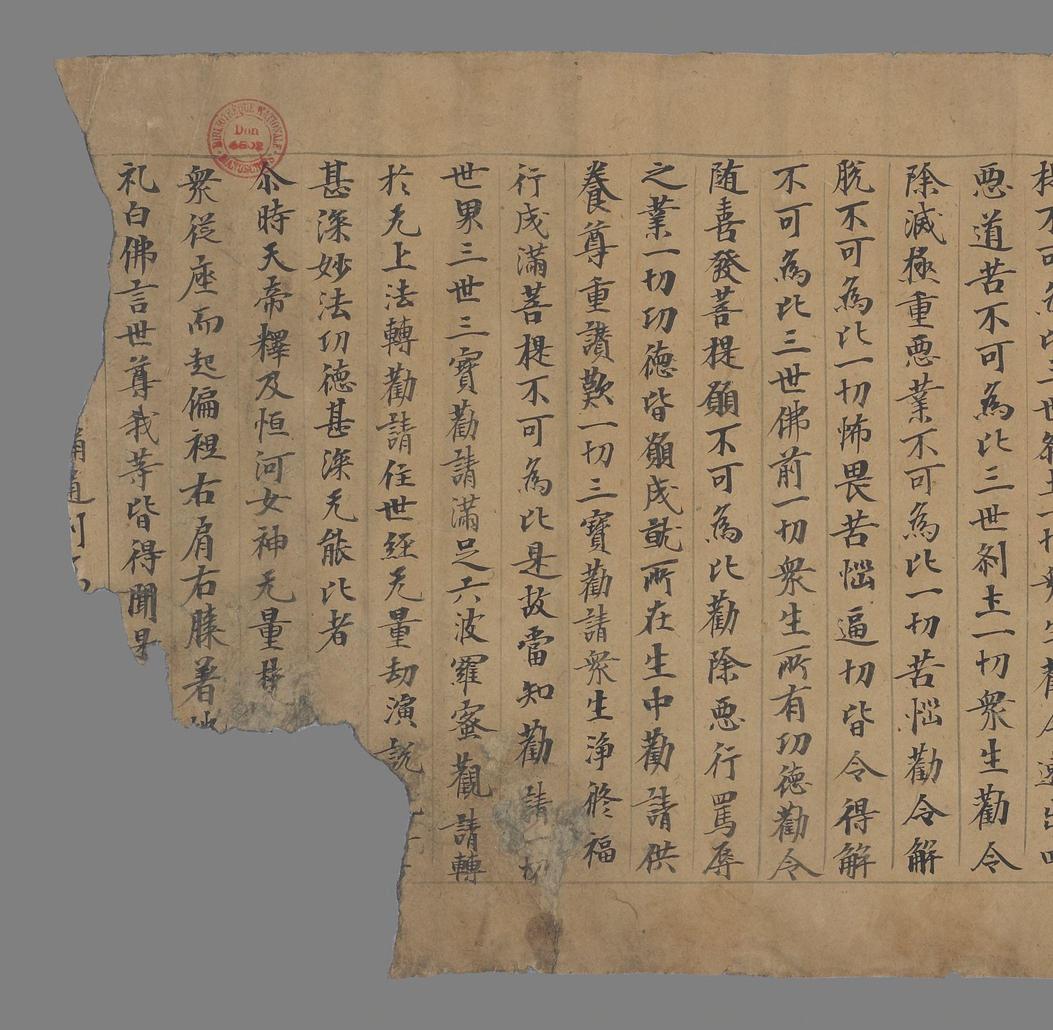 惡道苦不可為比三世剎土一切衆生勸令
除滅極重惡業不可為比一切苦惱勸令解
脫不可為比一切怖畏苦惱逼切皆令得解
不可為比三世佛前一切衆生所有功德勸令
随喜發菩提願不可為比勸除惡行罵辱
之業一切功德皆願成就所在生中勸請供
養尊重讚歎一切三寶勸請衆生淨修福
行成滿菩提不可為比是故當知勸請一切
世界三世三寶勸請滿足六波羅蜜勸請轉
於无上法轉勸請住世經无量劫演說
甚深妙法功德甚深无能比者
尒時天帝釋及恒河女神无量
衆從座而起偏袒右肩右膝著地
礼白佛言世尊我等皆得聞是
BIBLIOTHÈQUE NATIONALE
Don
4502
MANUSCRITS